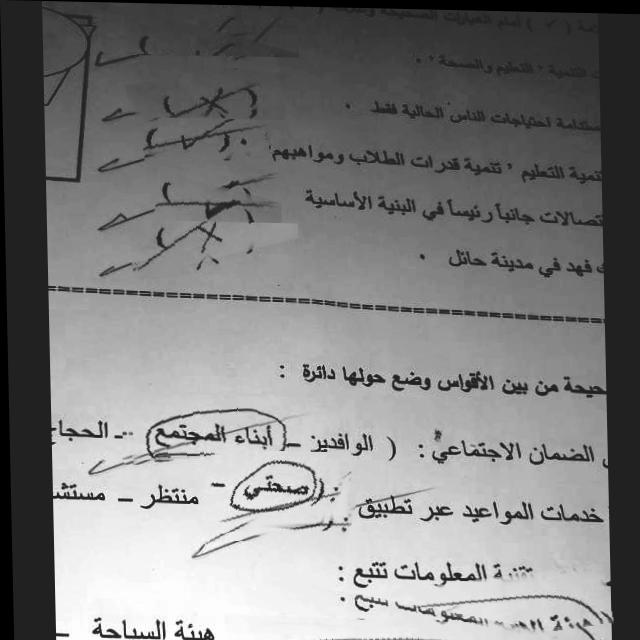 ( ✓ ) أمام العبارات الصحيحة
التنمية " التعليم والصحة " . ( )
احتياجات الناس الحالية فقط . ( × )
تنمية التعليم " تنمية قدرات الطلاب ومواهبهم" . ( ✓ )
تصالات جانباً رئيساً في البنية الأساسية ( ✓ )
ك فهد في مدينة حائل . ( × )
حيحة من بين الأقواس وضع حولها دائرة :
الضمان الاجتماعي : ( الوافدين – أبناء المجتمع – الحجاج
خدمات المواعيد عبر تطبيق ( صحتي – منتظر – مستش
تقنية المعلومات تتبع :
هيئة السياحة –